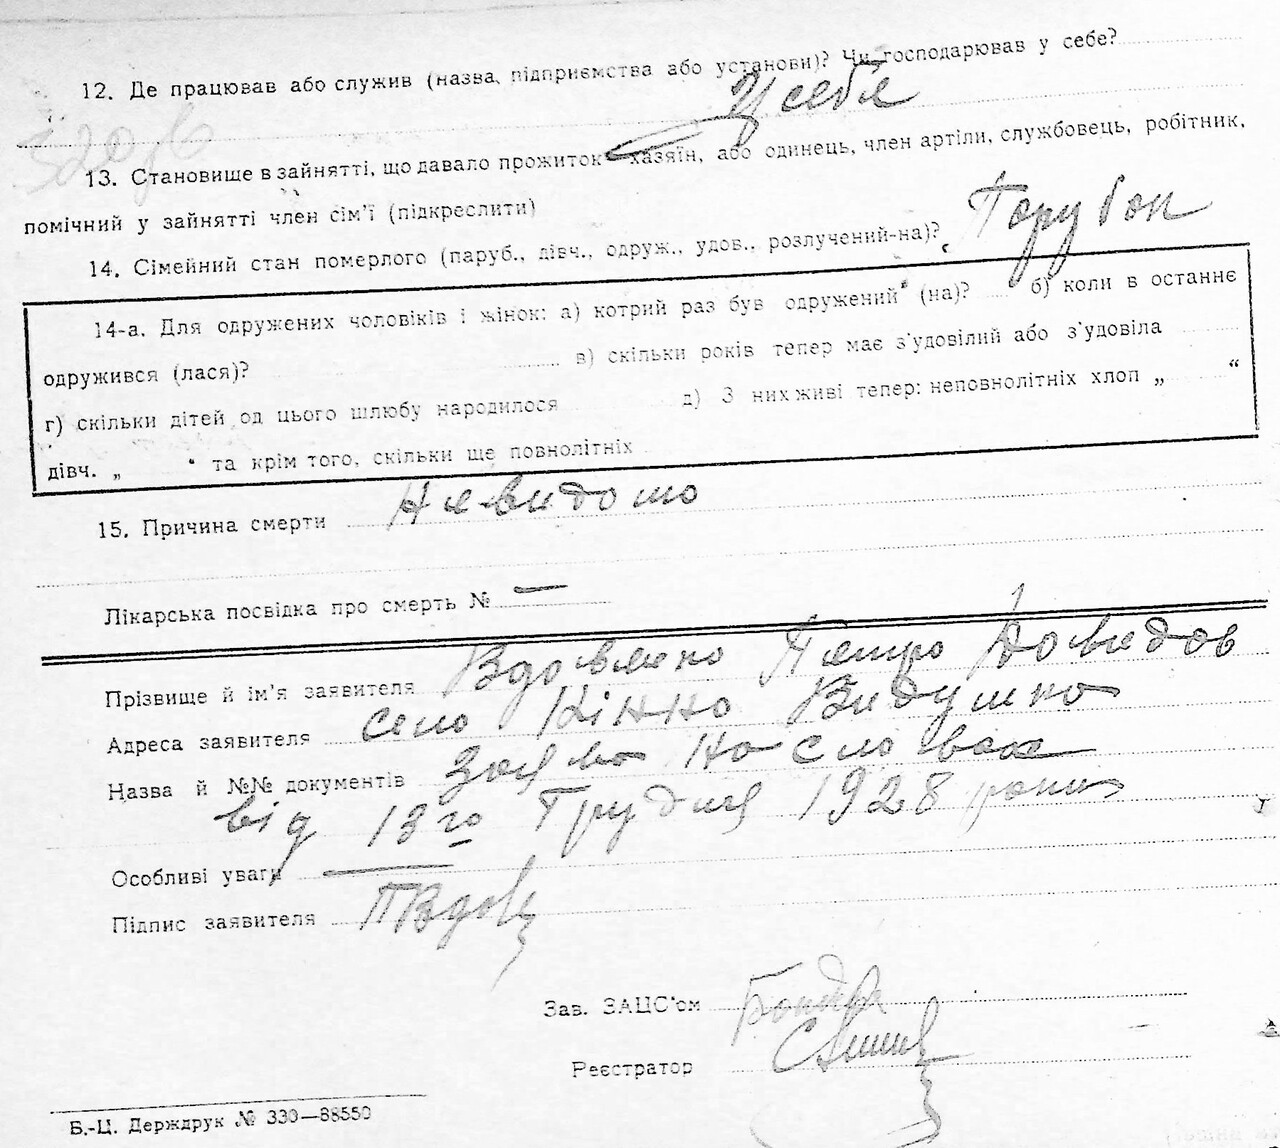 12. Де працював або служив (назва підприємства або установи)? Чи господарював у себе?
У себе
13. Становище в зайнятті, що давало прожиток хазяїн, або одинець, член артіли, службовець, робітник,
помічний у зайнятті член сім'ї (підкреслити)
14. Сімейний стан померлого (паруб., дівч., одруж., удов., розлучений-на)? Парубок
14-а. Для одружених чоловіків і жінок: а) котрий раз був одружений (на)? б) коли в останнє
одружився (лася)? в) скільки років тепер має з'удовілий або з'удовіла
г) скільки дітей од цього шлюбу народилося д) З них живі тепер: неповнолітніх хлоп „ “
дівч. „ “ та крім того, скільки ще повнолітніх
15. Причина смерти Невидомо
Лікарська посвідка про смерть № —
Прізвище й ім'я заявителя Вдовенко Петро Довидов
Адреса заявителя село Кінно
Назва й №№ документів Заява на словах
від 13го Грудня 1928 року
Особливі уваги —
Підпис заявителя ПВдов
Зав. ЗАЦС'ом
Реєстратор
Б.-Ц. Держдрук № 330—88550